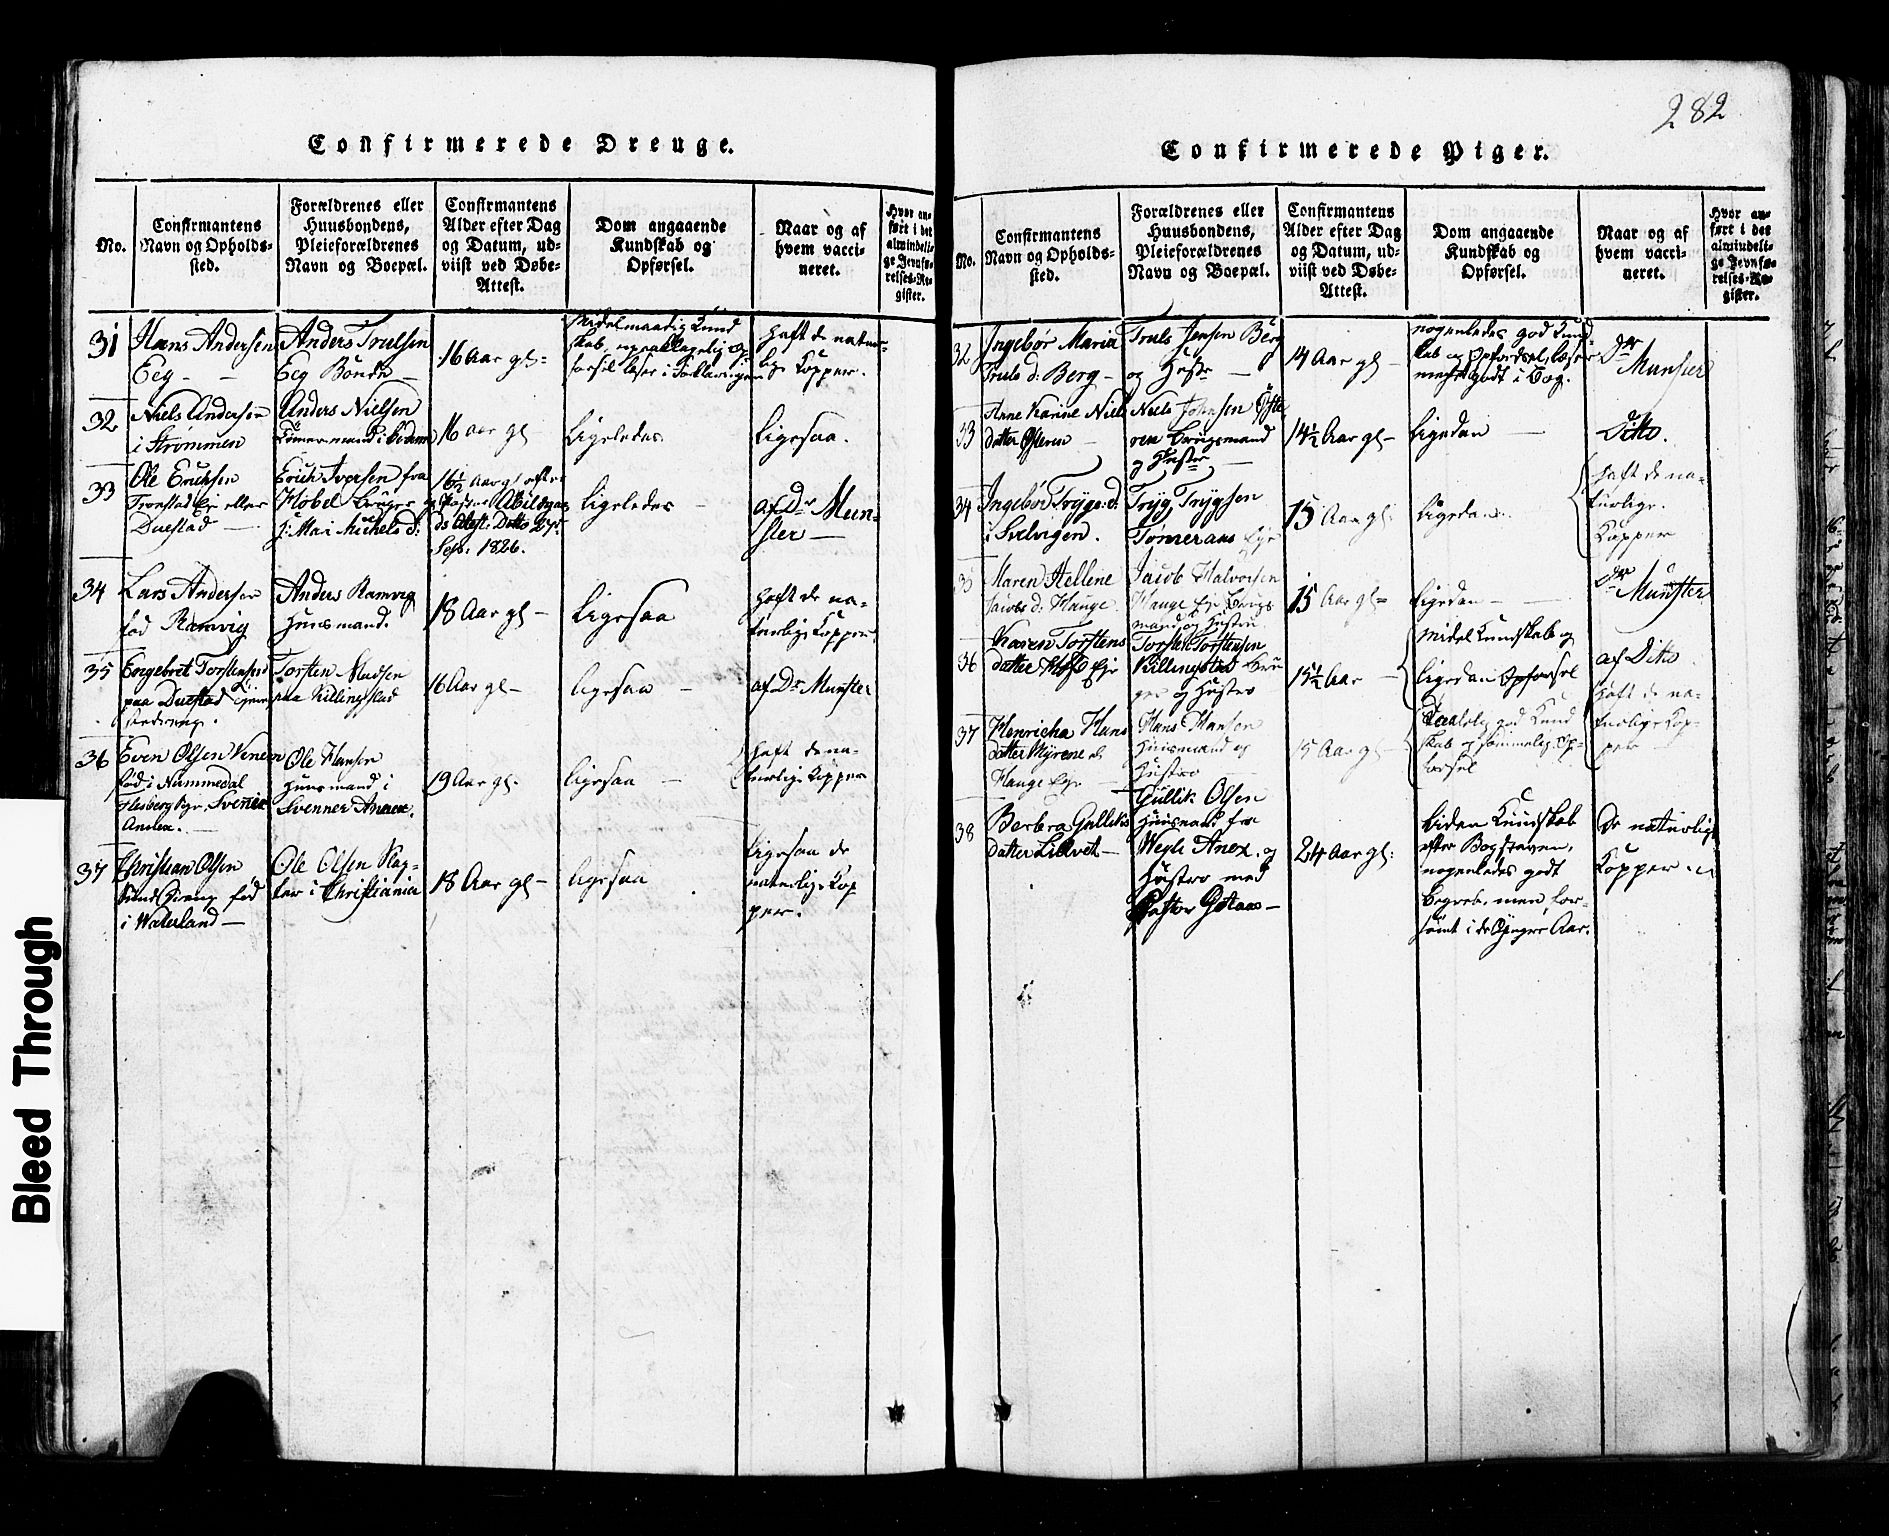 282
Confirmerede Drenge.
No.
Confirmantens
Navn og Opholds-
sted.
Forældrenes eller
Huusbondens,
Pleieforældrenes
Navn og Boepæl.
Confirmantens
Alder efter Dag
og Datum, ud-
viist ved Døbe-
Attest.
Dom angaaende
Kundskab og
Opførsel.
Naar og af
hvem vacci-
neret.
Hvor an-
ført i det
almindeli-
ge Jevnfø-
relses-Re-
gister.
31
Hans Andersen
Eeg - -
Anders Trulsen
Eeg Bönde -
16 Aar gl-
Midelmaadig Kund
skab, upaaklagelig Op-
forsel læser i Forklaringen
Haft de natur-
lige Kopper.
32
Niels Andersen
i Strømmen
Anders Nielsen
Tömermand i
16 aar gl
Ligeledes
Ligesaa.
33
Ole Erichsen
eller
Duestad -
Erich Iversen fra
Höbel Bruger
j: Mari Michels d:
16½ Aar gl efter
Attest: Ditto
Sep: 1826.
Ligeledes -
af Dr Mün-
ster -
34
Lars Andersen
föd Ramvig
Anders Ramvig
Huusmand.
18 Aar gl -
Ligesaa
Haft de na-
turlige Kopper
35
Engebret Torstensen
paa Duestad
Torsten Madsen
paa Killingstad
16 Aar gl -
ligesaa -
af Dr Munster
36
Even Olsen
föd i Nummedal
Flesberg Svene
Ander. -
Ole Hansen
Huusmand i
Svenner Annex.
19 Aar gl.
ligesaa -
Haft de na-
turlige Kopper
37
Christian Olsen
föd
i Waterland -
Ole Olsen Slag-
ter i Christiania
18 Aar gl -
ligesaa
Ligesaa de
naturlige Kop
per.
Confirmerede Piger.
No.
Confirmantens
Navn og Opholds-
sted.
Forældrenes eller
Huusbondens,
Pleieforældrenes
Navn og Boepæl.
Confirmantens
Alder efter Dag
og Datum, ud-
viist ved Døbe-
Attest.
Dom angaaende
Kundskab og
Opførsel.
Naar og af
hvem vacci-
neret.
Hvor an-
ført i det
almindeli-
ge Jevnfø-
relses-Re-
gister.
32
Ingebor Maria
Truls d. Berg -
Truls Jensen Berg
og Hustr -
14 Aar gl -
nogenledes god Kund-
skab og Opførdsel, læser
meget godt i Bog.
Dr
Munster
33
Anne Karine Niels
datter Østeren -
Niels Johnsen Øste
ren Brugsmand
og Hustr -
14½ Aar gl -
Ligedan -
Ditto.
34
Ingebor Trygs d.
i Svelvigen.
Tryg Trygsen
Tømerans Eje
15 Aar gl:
Ligedan.
Haft de na-
turlige
Kopper
35
Maren Hellene
Jacobs d: Hauge
Jacob Halvorsen
Hauge Eje Brugs
mand og Hustru.
15 Aar gl -
Ligedan -
Dr
Münster
36
Karen Torstens
datter Eje
Torsten Torstensen
Killingstad Bru
ger og Hustro
15½ Aar -
Midel Kundskab og
Ligedan Opforsel
af Ditto
37
Henricha Hans
datter Myrene
Hauge Eje -
Hans Hansen
Huusmand og
Hustro
15 Aar gl -
god Kund
skab og sømmelig Op-
forsel
Haft de na-
turlige Kop-
per
38
Berbra Gulliks
datter Lidlvet -
Gullik Olsen
Huusmand fra
Wegli Anex. og
Hustro med
Pastor Götaas -
24 Aar gl:
Liden Kundskab
efter Bogstaven,
nogenledes godt
Begreb, men for-
sömt i de yngre Aar.
De naturlige
Kopper
Bleed Through